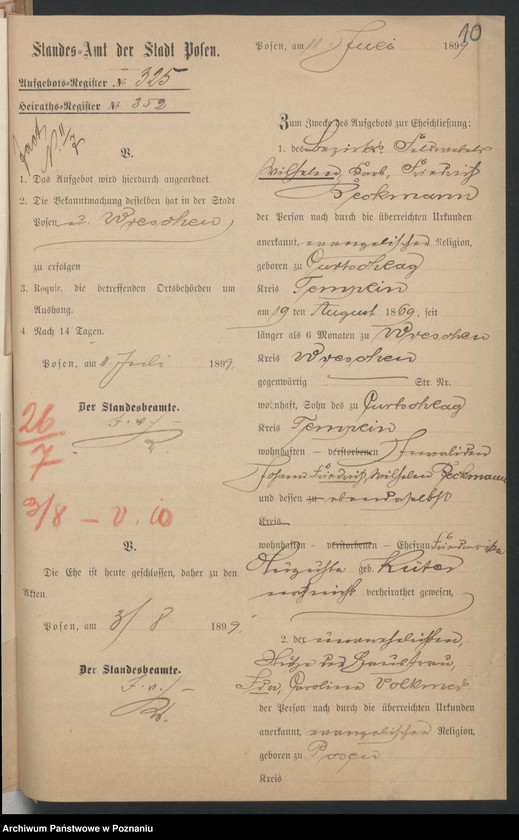 10
Standes-Amt der Stadt Posen.
Aufgebots-Register № 325
Heiraths-Register № 352
V.
1. Das Aufgebot wird hierdurch angeordnet.
2. Die Bekanntmachung desselben hat in der Stadt
Posen u. Wreschen
zu erfolgen
3. Requir. die betreffenden Ortsbehörden um
Aushang.
4. Nach 14 Tagen.
Posen, am 11. Juli 1899.
Der Standesbeamte.
26/7
3/8 – V. 10
V.
Die Ehe ist heute geschlossen, daher zu den
Akten.
Posen, am 3/8 1899.
Der Standesbeamte.
Posen, am 11. Juli 1899
Zum Zwecke des Aufgebots zur Eheschließung:
1. des Bezirks-Feldwebels
Wilhelm, Karl, Friedrich
Beckmann
der Person nach durch die überreichten Urkunden
anerkannt, evangelischer Religion,
geboren zu Curtschlag
Kreis Templin
am 19 ten August 1869, seit
länger als 6 Monaten zu Wreschen
Kreis Wreschen
gegenwärtig Str. Nr.
wohnhaft, Sohn des zu Curtschlag
Kreis Templin
wohnhaften – verstorbenen Invaliden
Johann Friedrich Wilhelm Beckmann
und dessen zu ebendaselbst
Kreis
wohnhaften – verstorbenen – Ehefrau Friederike
Auguste geb. Küter
noch nicht verheirathet gewesen,
2. der unverehelichten,
Stütze der Hausfrau,
Ida, Caroline Volkmer
der Person nach durch die überreichten Urkunden
anerkannt, evangelischer Religion,
geboren zu Posen
Kreis
Archiwum Państwowe w Poznaniu